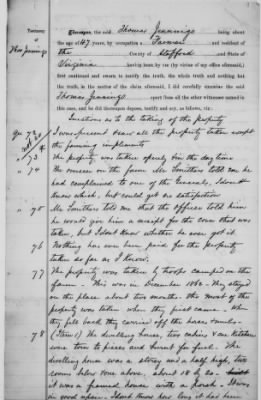 Testimony
of
Thos Jennings
Whereupon, the said Thomas Jennings being about
the age 47 years, by occupation a Farmer and resident of
the County of Stafford and State of
Virginia having been by (by virtue of my office aforesaid,)
first cautioned and sworn to testify the truth, the whole truth and nothing but
the truth, in the matter of the claim aforesaid, I did carefully examine the said
Thomas Jennings apart from all the other witnesses named in
this case, and he did thereupon depose, testify and say, as follows, viz:
Questions as to the taking of the property
Qu 72 I was present & saw all the property taken except
the farming implements
" 73 The property was taken openly in the day time
" 74 The overseer on the farm Mr Smithers told me he
had complained to one of the Generals, I dont
know which, but could get no satisfaction
" 75 Mr Smithers told me that the officers told him
he would give him a receipt for the corn that was
taken, but I dont know whether he ever got it.
76 Nothing has ever been paid for the property
taken so far as I know.
77 The property was taken by troops camped on the
farm - This was in December 1862 - They stayed
on the place about two months. The most of the
property was taken when they first came - When
they fell back they carried off the horse & mules
78 (Item 1) The dwelling house, two cabins & an kitchen
were torn to pieces and burnt for fuel. The
dwelling house was a story and a half high, two
rooms below & one above, about 18 by 20 -
it was a framed house with a porch - It was
in good repair - I dont know how long it had been